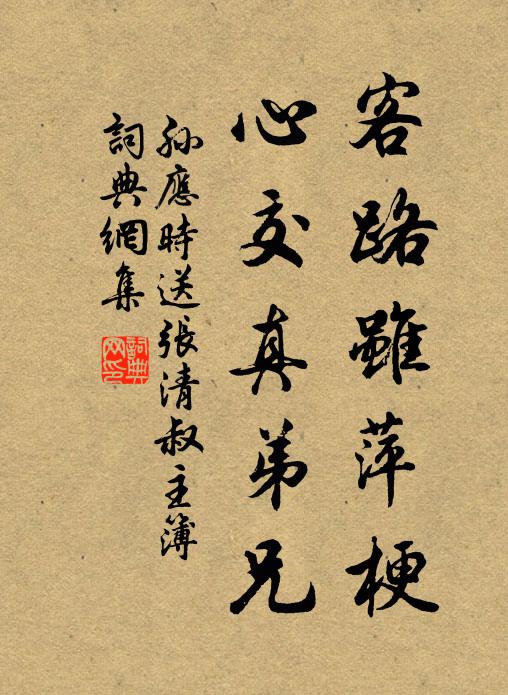 客路雖萍梗
心交真弟兄
孫應時送張清叔主簿
詞典網集
詞典
网印